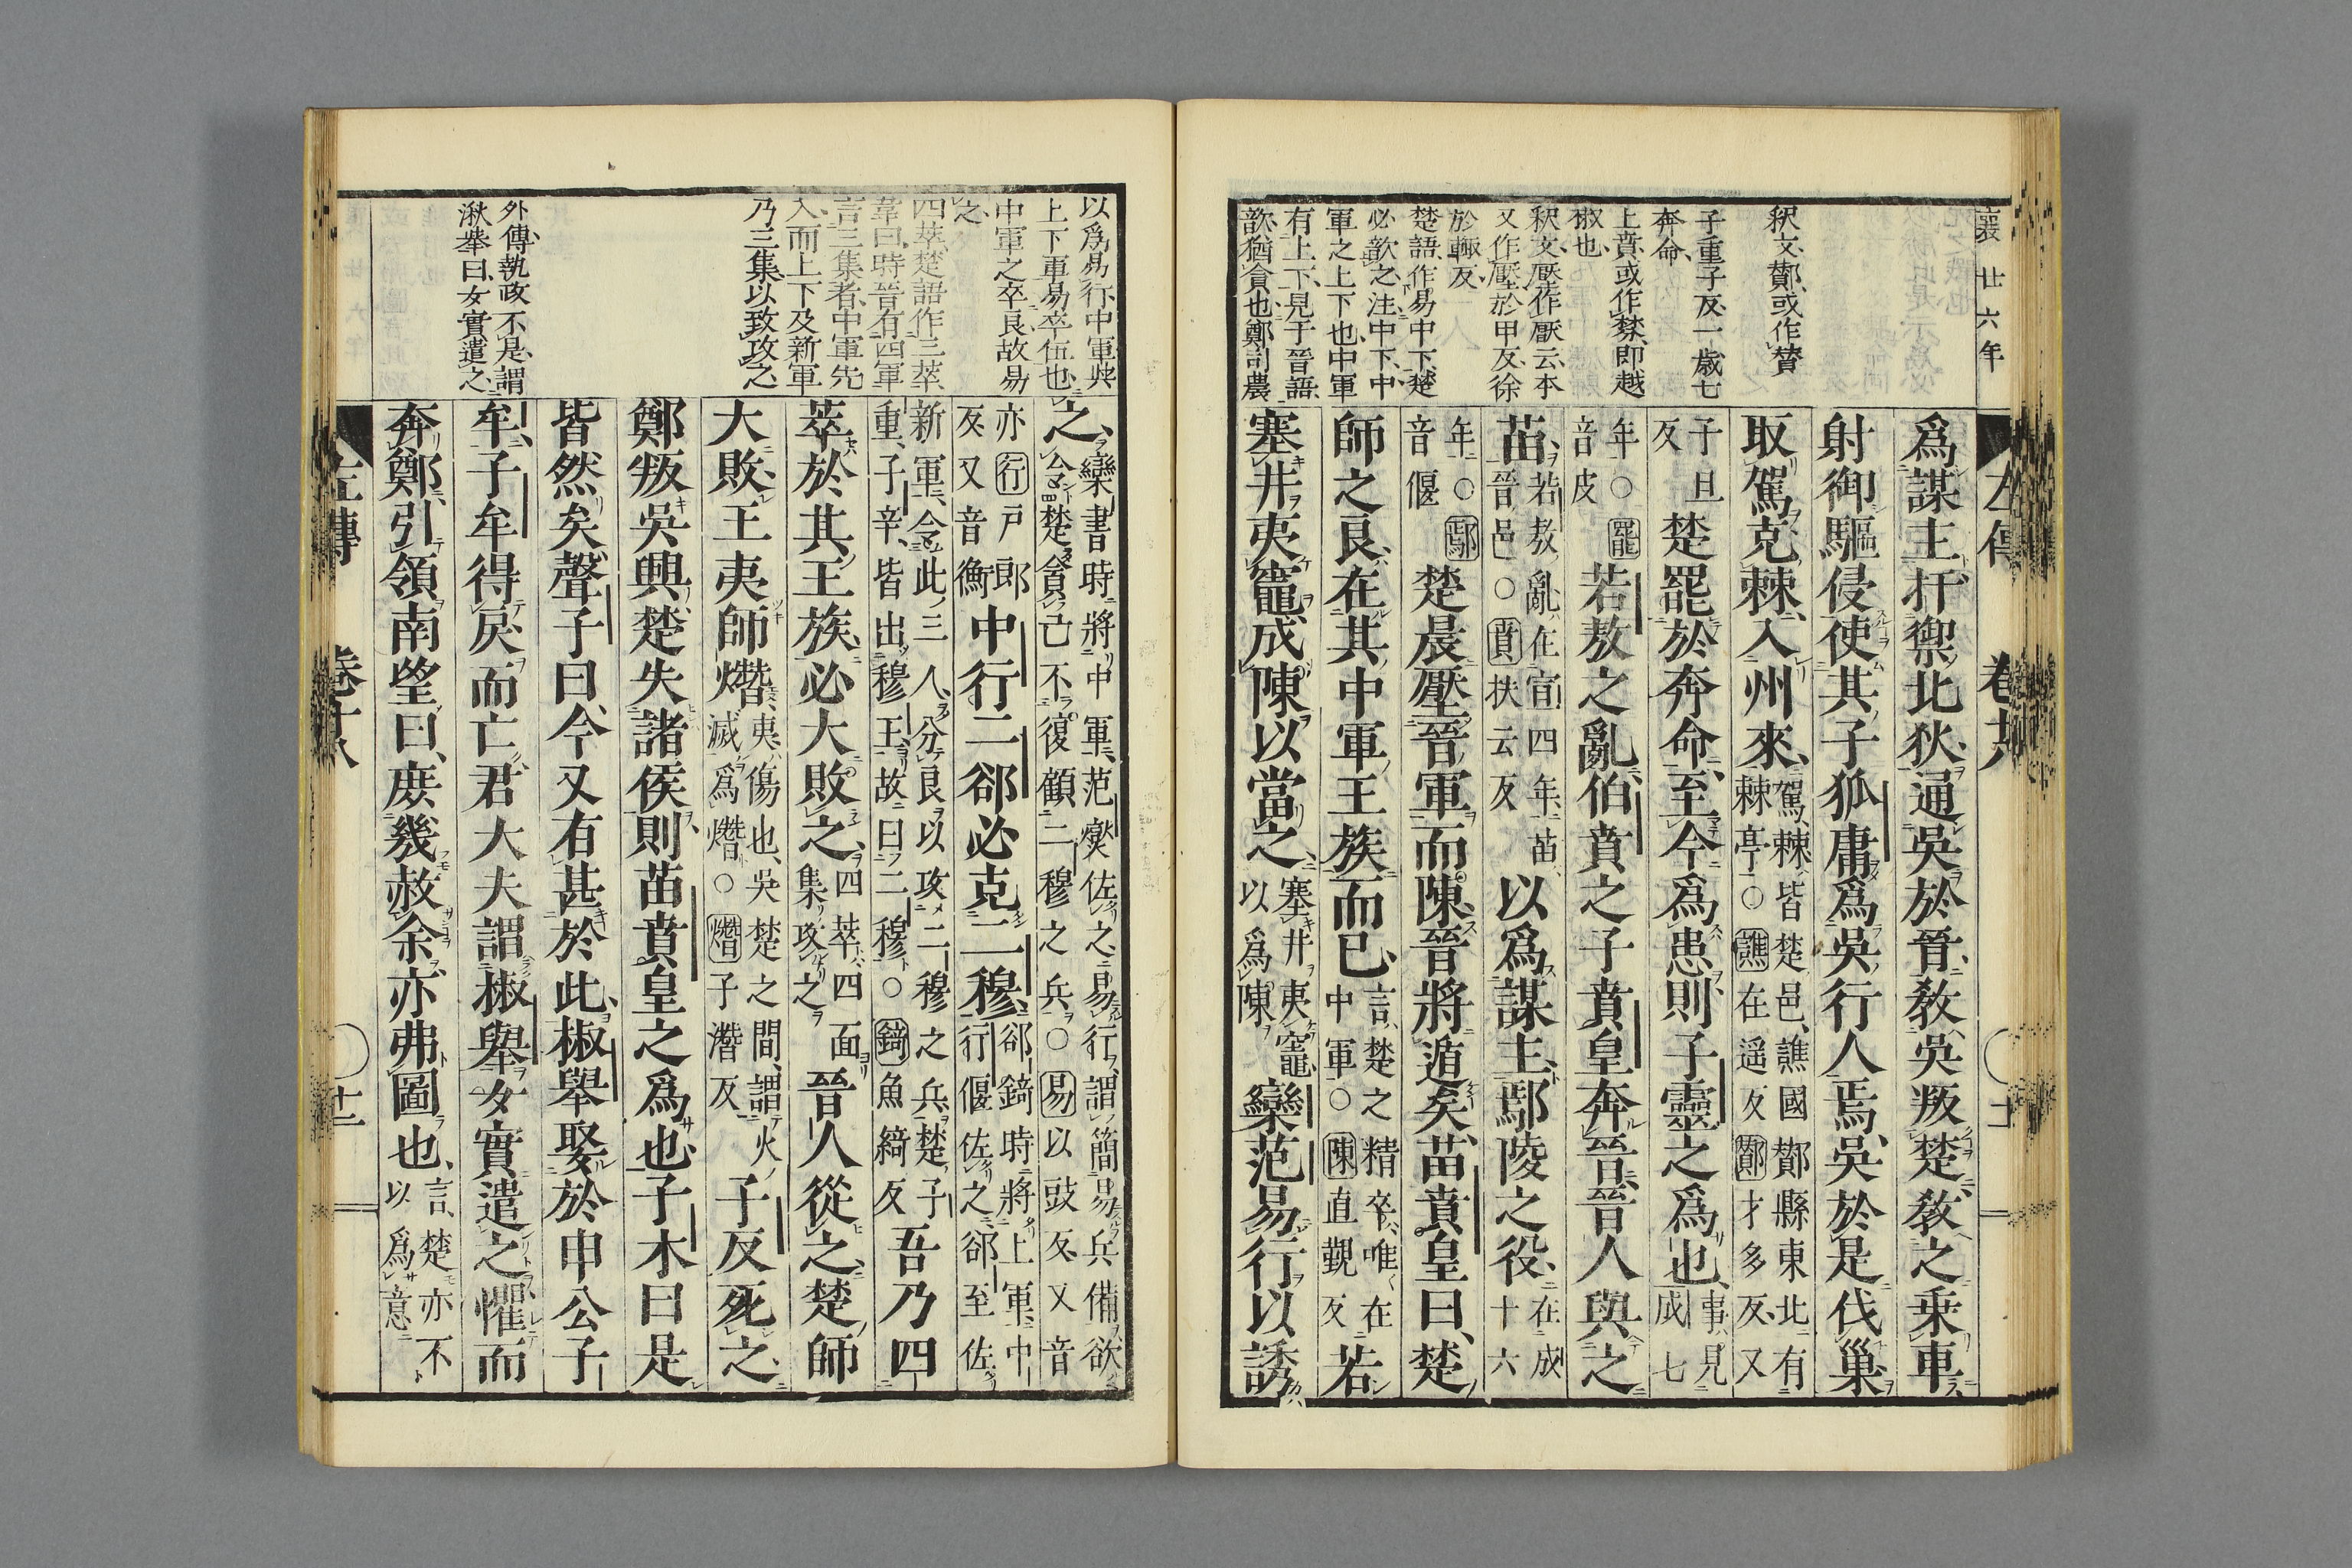 襄廿六年
釈文、鄼、或作酇
子重子反一歳七
奔命、
上賁、或作棼、即越
椒也、
釈文、壓作厭云、本
又作壓於甲反、徐
於輒反、
楚語、作易中下、楚
必歆之、注、中下、中
軍之上下也、中軍
有上下、見于晉語、
歆猶貪也、鄭司農
爲謀主、扞禦北狄、通吳於晉、敎吳叛楚、敎之乘車、
射御驅侵、使其子狐庸爲吳行人焉、吳於是伐巢、
取駕、克棘、入州來、駕、棘、皆楚邑、譙國鄼縣東北有
棘亭○譙在遥反鄼才多反、又
子旦
反
楚罷於奔命、至今爲患、則子靈之爲也、事見成七
年○罷
音皮
若敖之亂、伯賁之子賁皇奔晉、晉人與之
苗、若敖亂在宣四年、苗、
晉邑○賁扶云反
以爲謀主、鄢陵之役、在成十六
年○鄢
音偃
楚晨壓晉軍而陳、晉將遁矣、苗賁皇曰、楚
師之良、在其中軍王族而已、言、楚之精卒、唯在
中軍○陳直覲反
若
塞井夷竈、成陳以當之、塞井夷竈、
以爲陳
欒范易行以誘
左傳 卷十八
以爲易行、中軍與
上下軍易卒伍也、
中軍之卒良、故易
之、
四萃、楚語作三萃、
韋曰、時晉有四軍
言三集者、中軍先
入、而上下及新軍
乃三集以致攻之
外傳、執政不是、謂
湫擧曰、女實遣之、
之、欒書時將中軍、范燮佐之、易行、謂簡易兵備、欲
令楚貪己、不復顧二穆之兵○易以豉反、又音
亦行戸郎
反又音衡
中行二郤必克二穆、郤錡時將上軍、中
行偃佐之、郤至佐
新軍、令此三人、分良以攻二穆之兵、楚子
重、子辛、皆出穆王、故曰二穆○錡魚綺反
吾乃四
萃於其王族、必大敗之、四萃、四面
集攻之、
晉人從之、楚師
大敗、王夷師熸、夷、傷也、吳楚之間、謂火
滅爲熸○熸子潛反
子反死之、
鄭叛吳興、楚失諸侯、則苗賁皇之爲也、子木曰、是
皆然矣、聲子曰、今又有甚於此、椒擧娶於申公子
牟、子牟得戾而亡、君大夫謂椒擧、女實遣之、懼而
奔鄭、引領南望曰、庶幾赦余、亦弗圖也、言、楚亦不
以爲意、
左傳 卷十八 十二